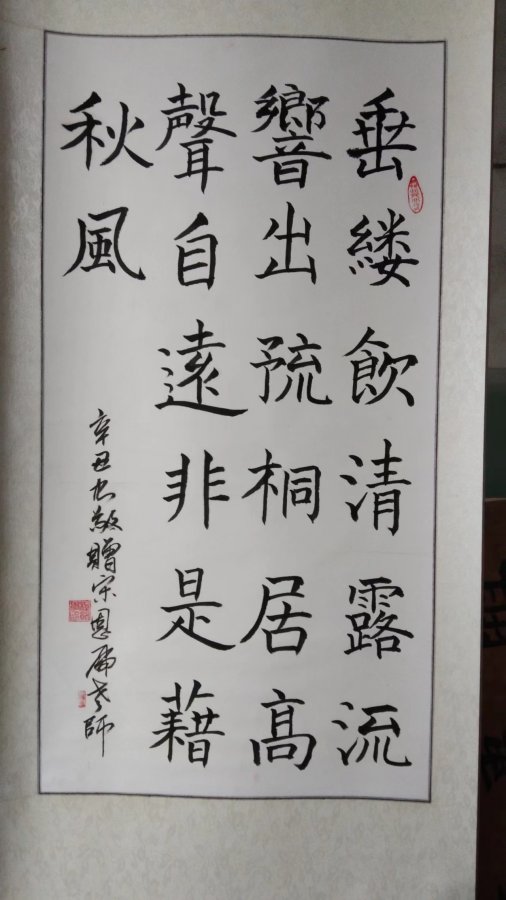 垂縷飲清露流
響出疏桐居高
聲自遠非是藉
秋風
辛丑敬贈宋恩老師